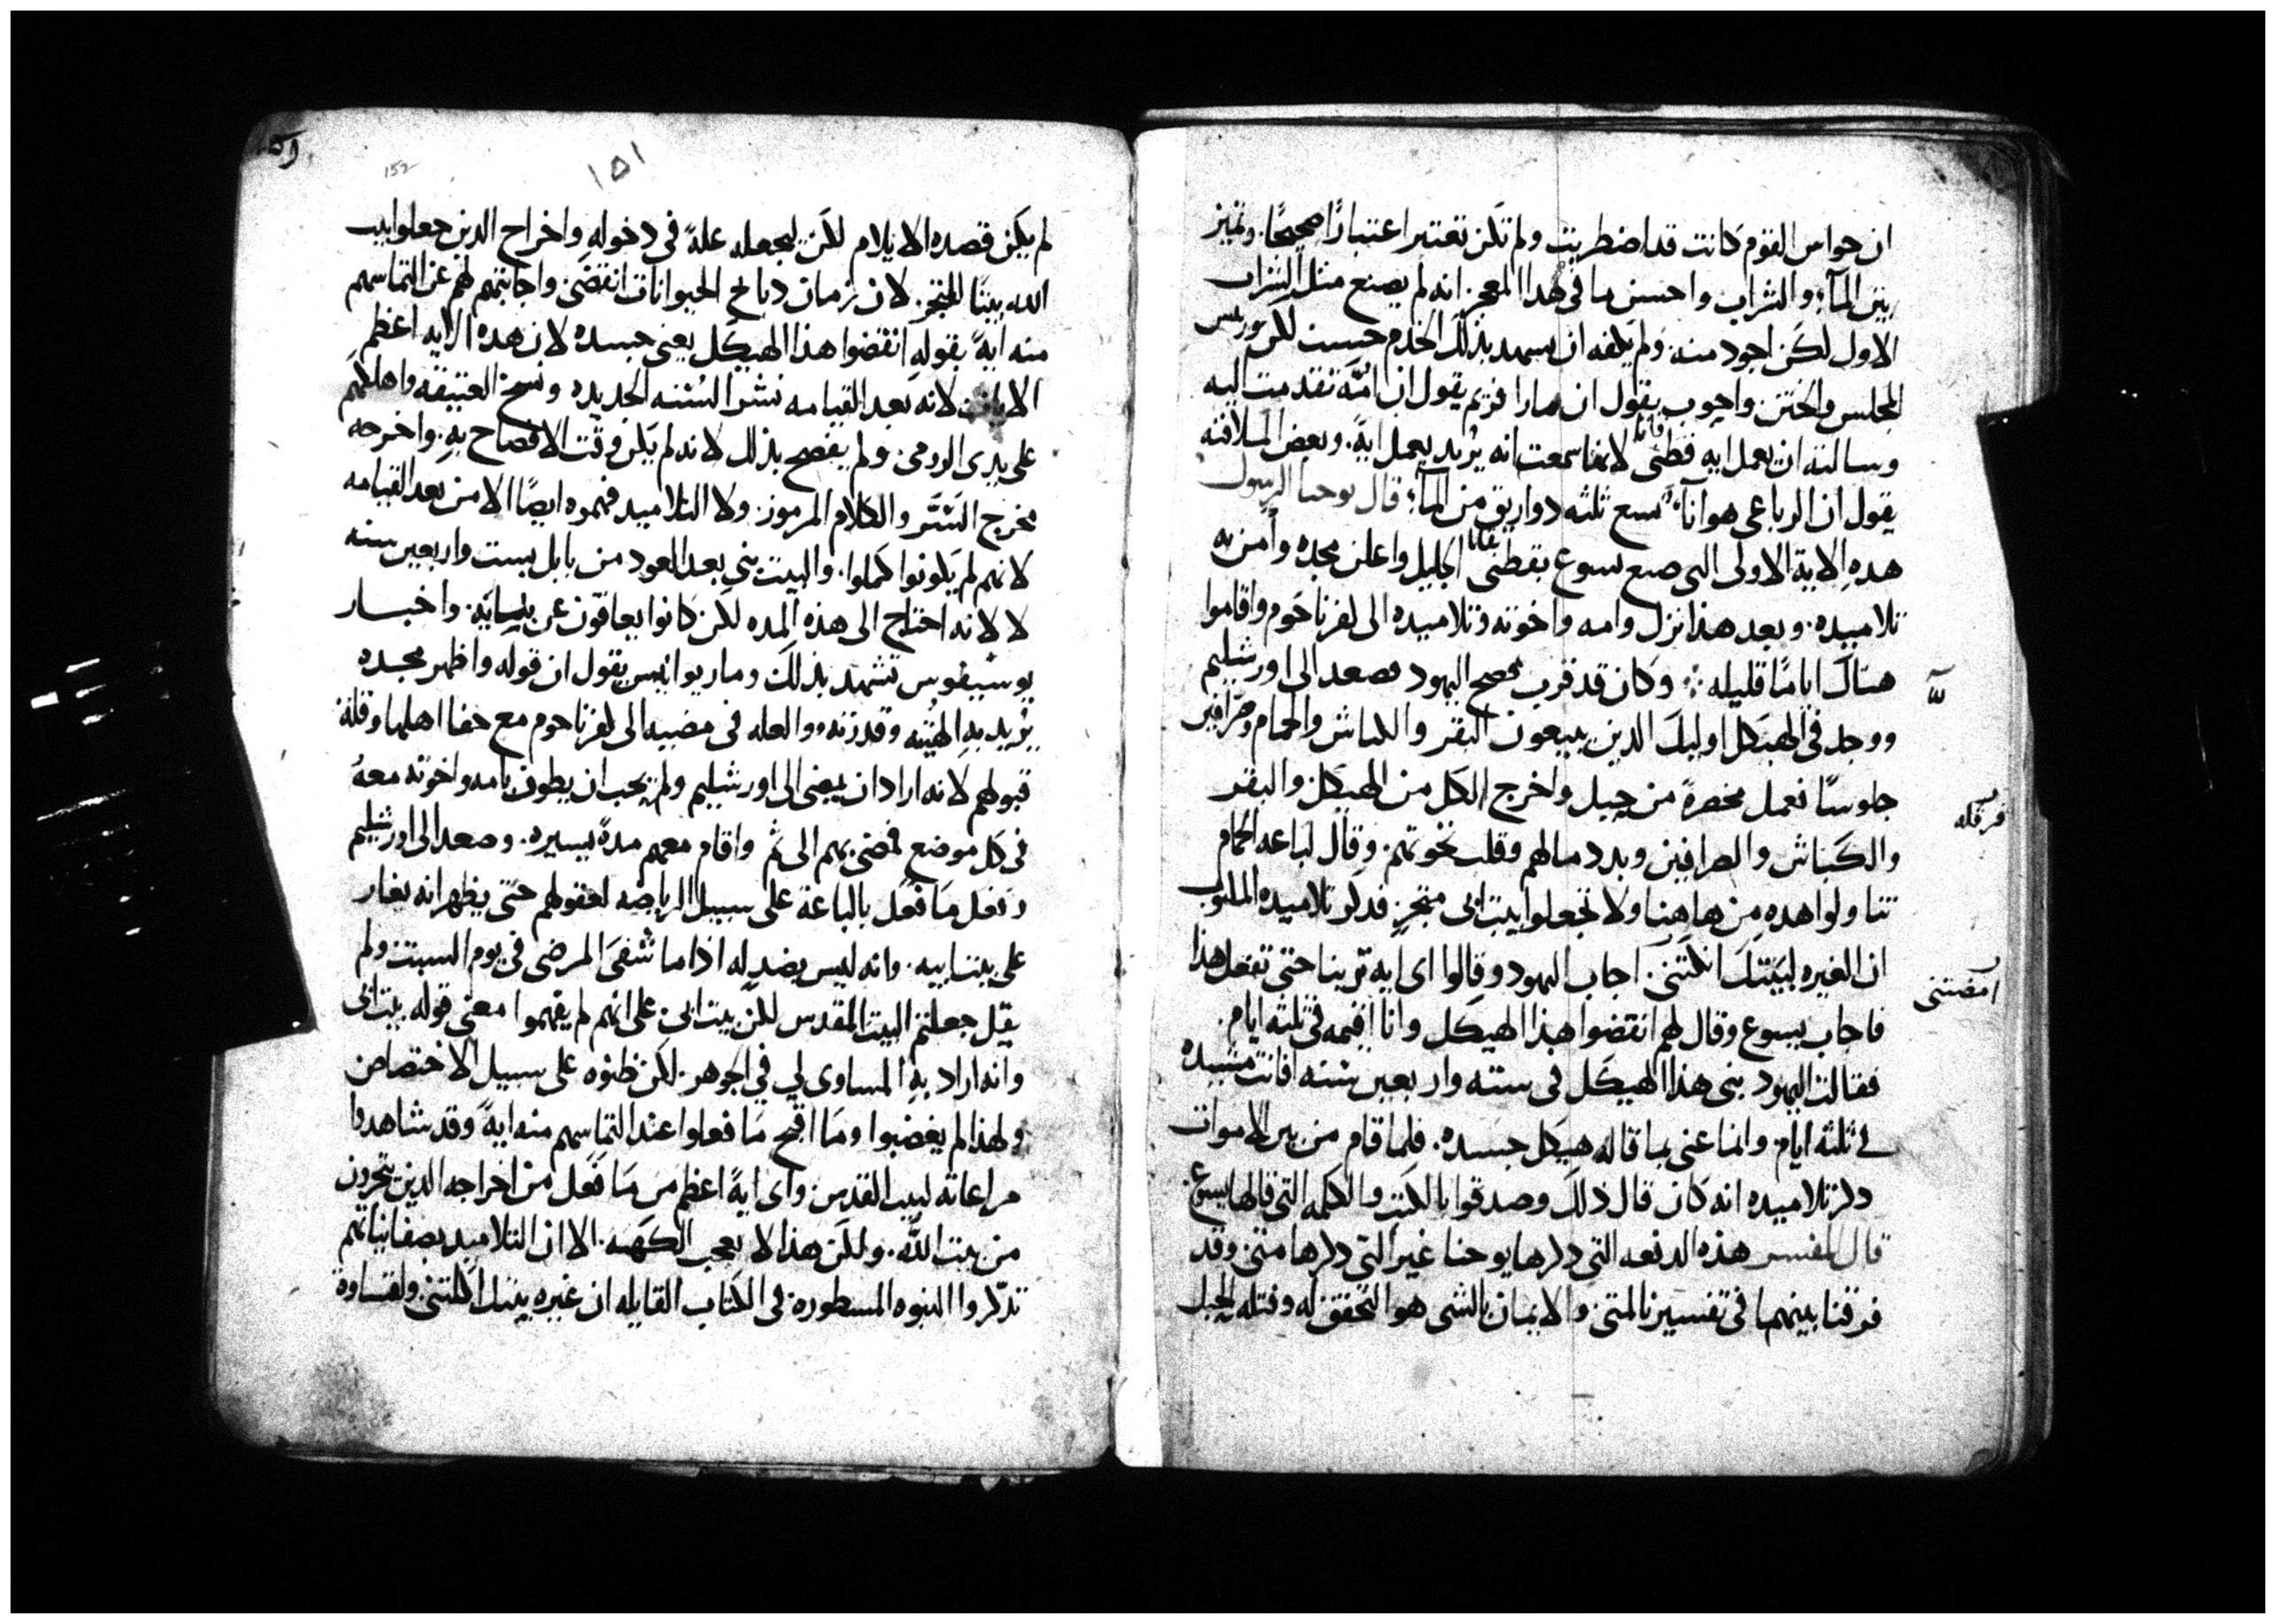 ان حواس القوم كانت قد اضطربت ولم تكن تعتبر اعتبارًا صحيحًا. وتميز
بين المآء والشراب واحسن ما فى هدا المعجز انه لم يصنع مثل الشراب
الاول لكن اجود منه. ولم يكفه ان يسهد بذلك الخدم حسب لكن وريس
المجلس والختن واجوب يقول ان مارا مريم يقول ان امّه تقدمت اليه
وسالته ان يعمل ايه قطنى قانا لانها سمعت انه يُريد يعمل ايةً. وبعض الملافنه
يقول ان الرباعى هو انآء يسع ثلثه دواريق من المآء؛ قال يوحنا الرسول
هدهِ الاية الاولى التى صنع يسوع بقطنى قانا الجليل واعلن مجده وآمن به
تلاميده. وبعد هذا نزل وامه واخوته وتلاميده الى كفرناحوم واقاموا
هناك ايامًا قليله؛ وكان قد قرب فصح اليهود فصعد الى اورشليم
ووجد فى الهيكل اوليك الدين يبيعون البقر والكباش والحمام وصرافين
جلوسًا فعمل مخصرةً من حبل واخرج الكل من الهيكل والبقر
فرقله
والكباش والصرافين وبدد مالهم وقلب تخوتهم. وقال لباعه الحمام
تناولوا هده من هاهنا ولا تجعلوا بيت ابى متجرٍ فدكر تلاميده المكتوب
ان الغيره لبيتك اكلتنى. اجاب اليهود وقالوا اى ايه ترينا حتى تفعل هذا
فاجاب يسوع وقال لهم انقضوا هذا الهيكل وانا اقيمه فى ثلثه ايام.
فقالت اليهود بنى هذا الهيكل فى سته واربعين سنه افانت مشيده
فى ثلثه ايام. وانما عنى بما قاله هيكل جسده. فلما قام من بين الاموات
دكر تلاميده انه كان قال ذلك وصدقوا بالكتب والكلمه التى قالها يسوع.
قال المفسر هذه الدفعه التى دكرها يوحنا غير التى دكرها متى وقد
فرقنا بينهما فى تفسيرنا لمتى. والايمان بالشى هو التحقق له وفتله الحبل
١٥١
152
لم يكن قصده الايلام لكن ليجعله علةً فى دخولهِ واخراج الدين جعلوا بيت
الله بيتًا للمتجر. لان زمان دبايح الحيوانات انقضى واجابتهم لهم عن التماسهم
منه ايةً بقوله انقضوا هذا الهيكل يعنى جسده لان هده الايه اعظم
الايات لانه بعد القيامه نشر السُنه الجديده ونسخ العتيقه واهلكهم
على يدى الرومى. ولم يفصح بذلك لانه لم يكن وقت الافصاح به. واخرجه
مخرج السّتر والكلام المرموز. ولا التلاميد فهموه ايضًا الا من بعد القيامه
لانهم لم يكونوا كملوا. والبيت بنى بعد العود من بابل بست واربعين سنه
لا لانه احتاج الى هذه المده لكن كانوا يعاقون عن بنيانه. واخبار
يوسيفوس تشهد بذلك ومار يوانيس يقول ان قوله واظهر مجده
يُريد به الهيّته وقدرته. والعله فى مضيه الى كفرناحوم مع جفا اهلها وقلة
قبولهم لانه اراد ان يمضى الى اورشليم ولم يحب ان يطوف بامه واخوته معهُ
فى كل موضع فمضى بهم الى ثم واقام معهم مدةً يسيره. وصعد الى اورشليم
وفعل ما فعل بالباعة على سبيل الرياضه لعقولهم حتى يظهر انه يغار
على بيت ابيه. وانه ليس بضدٍ له اذا ما شفى المرضى فى يوم السبت ولم
يقل جعلتم البيت المقدس لكن بيت ابى. على انهم لم يفهموا معنى قوله بيت ابى
وانه اراد به المساوى لي فى الجوهر. لكن ظنوه على سبيل الاختصاص
ولهذا لم يغضبوا وما اقبح ما فعلوا عند التماسهم منه ايةً وقد شاهدوا
مراعاته لبيت القدس. واى ايةً اعظم من ما فعل من اخراجه الدين يتجرون
من بيت اللّه. ولكن هذا لا يعجب الكهنه. الا ان التلاميد بصفا نياتهم
تدكروا النبوه المسطوره فى الكتاب القايله ان غيره بيتك اكلتنى ولقساوة